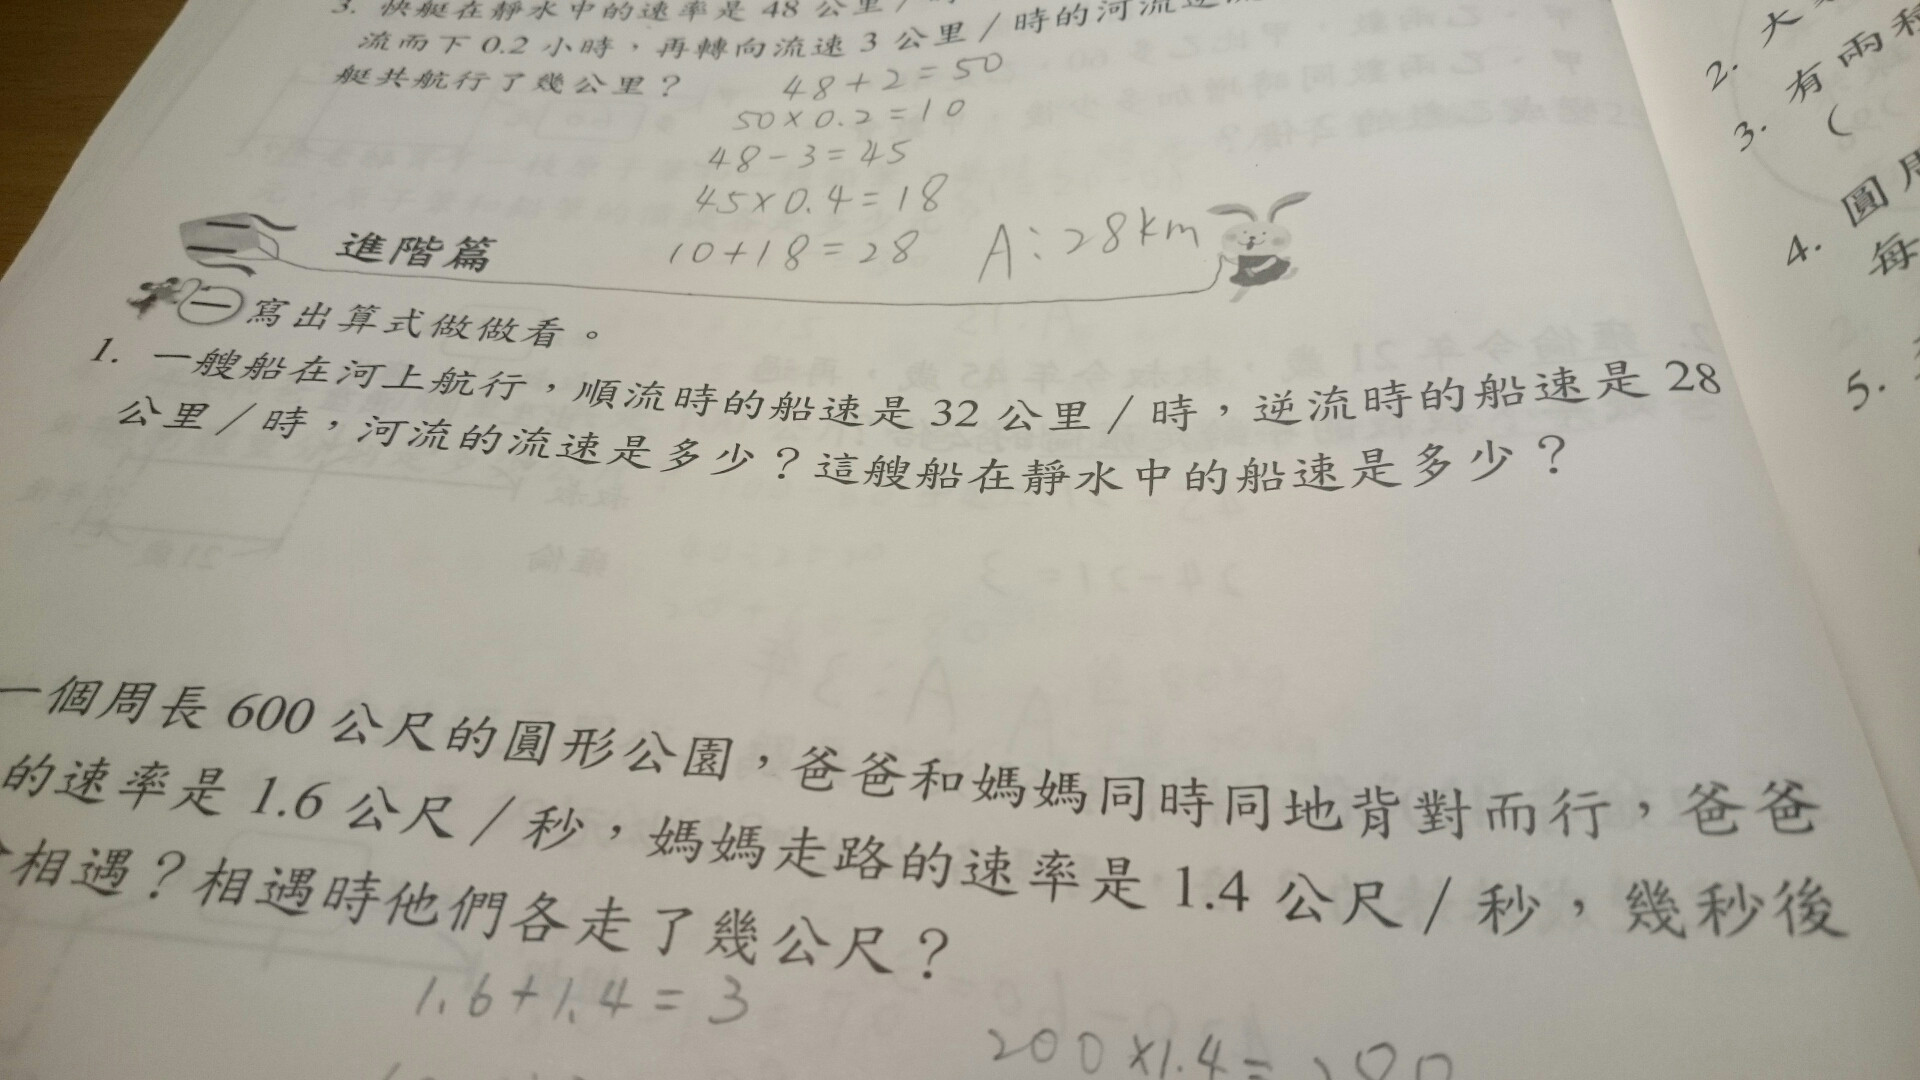 3. 快艇在靜水中的速率是 48 公里/
流而下 0.2 小時，再轉向流速 3 公里/時的河流
艇共航行了幾公里？
48+2=50
50×0.2=10
48-3=45
45×0.4=18
10+18=28 A:28km
二 進階篇
一 寫出算式做做看。
1. 一艘船在河上航行，順流時的船速是 32 公里/時，逆流時的船速是 28
公里/時，河流的流速是多少？這艘船在靜水中的船速是多少？
一個周長 600 公尺的圓形公園，爸爸和媽媽同時同地背對而行，爸爸
的速率是 1.6 公尺/秒，媽媽走路的速率是 1.4 公尺/秒，幾秒後
相遇？相遇時他們各走了幾公尺？
1.6+1.4=3
200×1.4=280
2. 大
3. 有兩種
(
4. 圓周
每
5.